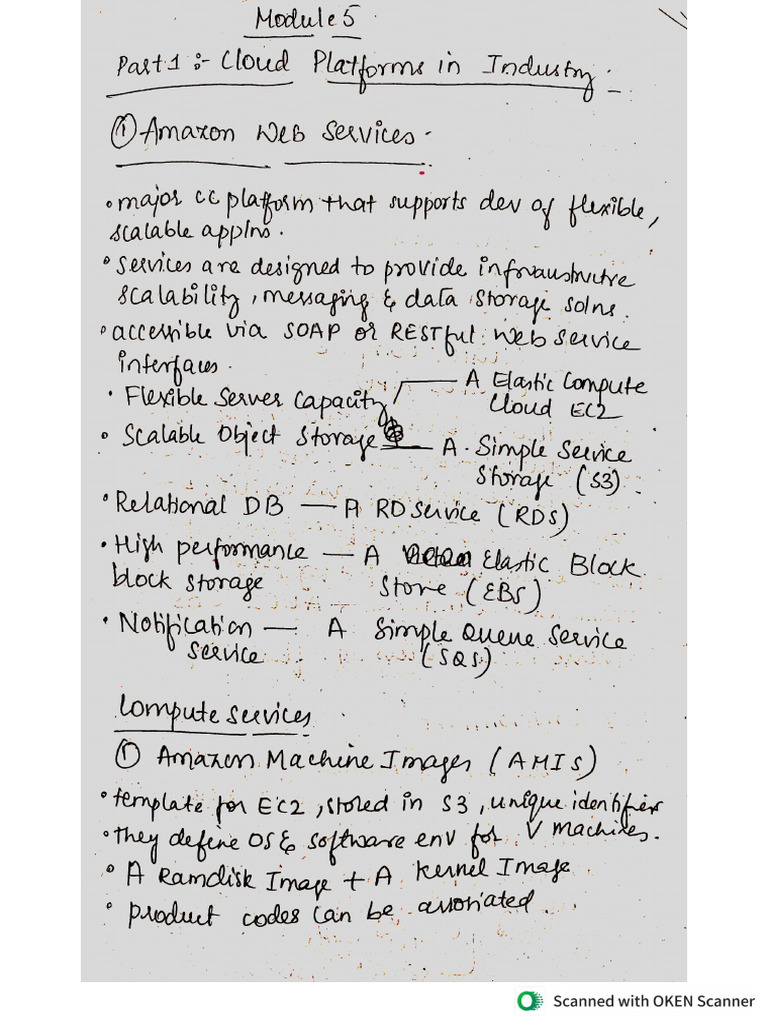 Module 5
Part 1 :- Cloud Platforms in Industry.
① Amazon Web Services.
• major cc platform that supports dev of flexible,
scalable applns.
• services are designed to provide infraustructre
scalability, messaging & data storage solns.
• accessible via SOAP or RESTful web service
interfaces.
• Flexible Server Capacity — A Elastic Compute
Cloud EC2
• Scalable Object Storage — A. Simple Service
Storage (S3).
• Relational DB — A RD Service (RDS)
• High performance — A Elastic Block
block storage Store (EBS)
• Notification — A Simple Queue Service
service (SQS)
Compute Services
① Amazon Machine Images (AMIS)
• template for EC2, stored in S3, unique identifier
• they define OS & software env for V machines.
• A Ramdisk Image + A kernel Image
• product codes can be associated.
Scanned with OKEN Scanner